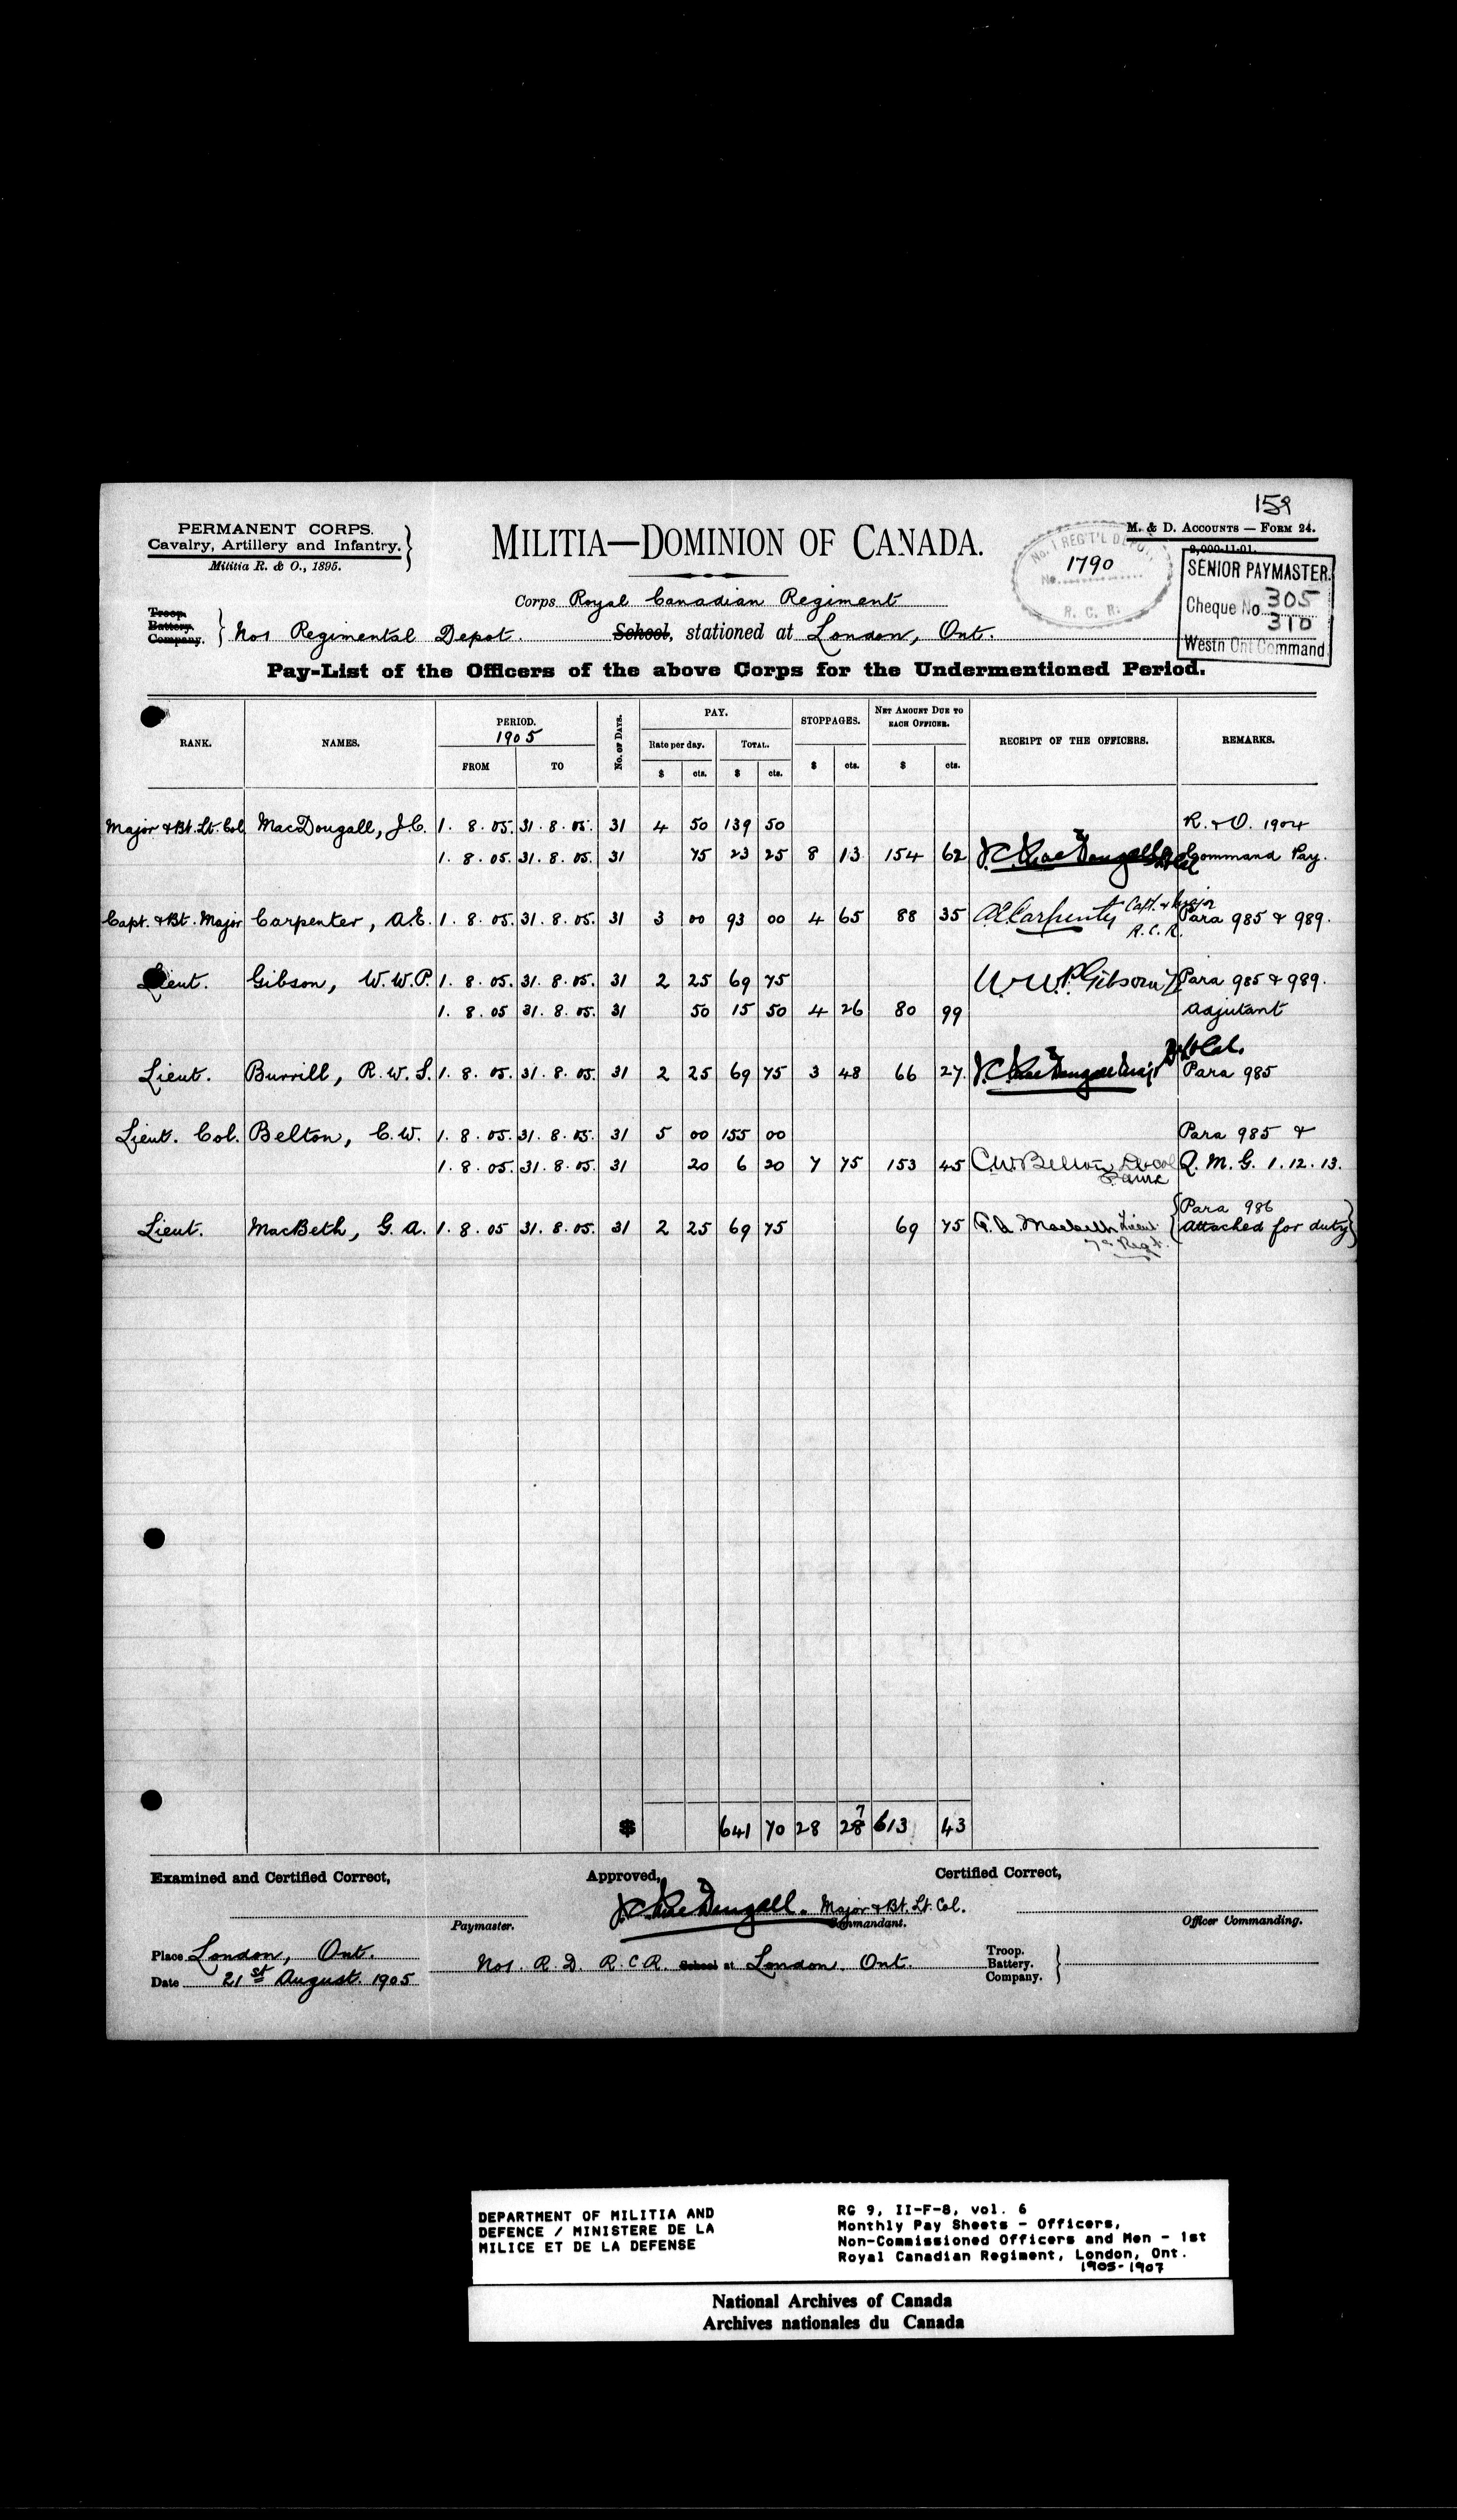 159
PERMANENT CORPS.
Cavalry, Artillery and Infantry.
Militia R. & O., 1895.
MILITIA—DOMINION OF CANADA.
M. & D. ACCOUNTS — FORM 24.
2,000-11-01.
No. 1 REG'T'L DEPOT,
No. 1790
R. C. R.
SENIOR PAYMASTER.
Cheque No. 305
310
Westn Ont Command
Corps Royal Canadian Regiment
Troop.
Battery.
Company.
No 1 Regimental Depot. School, stationed at London, Ont.
Pay-List of the Officers of the above Corps for the Undermentioned Period.
RANK. NAMES. PERIOD. 1905 FROM TO No. OF DAYS. PAY. Rate per day. $ cts. TOTAL. $ cts. STOPPAGES. $ cts. NET AMOUNT DUE TO EACH OFFICER. $ cts. RECEIPT OF THE OFFICERS. REMARKS.
Major & Bt. Lt. Col MacDougall, J.C. 1. 8. 05. 31. 8. 05. 31 4 50 139 50 R. & O. 1904
1. 8. 05. 31. 8. 05. 31 75 23 25 8 13 154 62 J.C. MacDougall Command Pay.
Capt. & Bt. Major Carpenter, A.E. 1. 8. 05. 31. 8. 05. 31 3 00 93 00 4 65 88 35 AE Carpenter Capt. & Bt Major R.C.R. Para 985 & 989.
Lieut. Gibson, W.W.P. 1. 8. 05. 31. 8. 05. 31 2 25 69 75 W.W.P. Gibson Lt Para 985 & 989.
1. 8. 05 31. 8. 05. 31 50 15 50 4 26 80 99 Adjutant
Lieut. Burrill, R.W.S. 1. 8. 05. 31. 8. 05. 31 2 25 69 75 3 48 66 27. J.C. MacDougall Major Bt Lt Col. Para 985
Lieut. Col. Belton, C.W. 1. 8. 05. 31. 8. 05. 31 5 00 155 00 Para 985 &
1. 8. 05. 31. 8. 05. 31 20 6 20 7 75 153 45 C.W. Belton Lt Col Q. M. G. 1. 12. 13.
Lieut. MacBeth, G. A. 1. 8. 05 31. 8. 05. 31 2 25 69 75 69 75 G. A. Macbeth Lieut. 7th Regt. Para 986 Attached for duty
$ 641 70 28 28 7 613 43
Examined and Certified Correct, Approved, Certified Correct,
J.C. MacDougall. Major & Bt. Lt. Col.
Paymaster. Commandant. Officer Commanding.
Place London, Ont.
No 1. R. D. R.C.R. School at London, Ont.
Troop.
Battery.
Company.
Date 21st August. 1905
DEPARTMENT OF MILITIA AND
DEFENCE / MINISTERE DE LA
MILICE ET DE LA DEFENSE
RG 9, II-F-8, vol. 6
Monthly Pay Sheets - Officers,
Non-Commissioned Officers and Men - 1st
Royal Canadian Regiment, London, Ont.
1905-1907
National Archives of Canada
Archives nationales du Canada